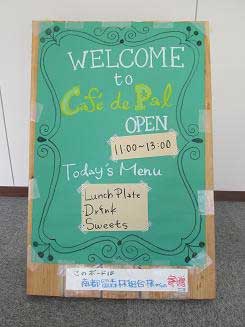 WELCOME
to
Café de Pal
OPEN
11:00~13:00
Today's Menu
Lunch Plate
Drink
Sweets
このボードは
南都留森林組合様からの